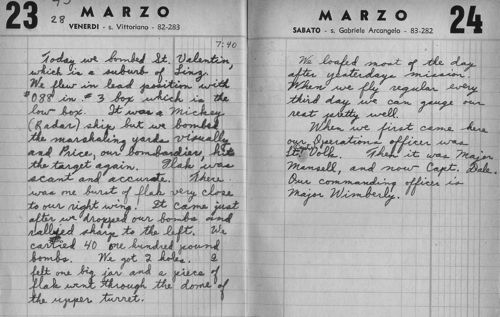 23 MARZO
28 VENERDI - s. Vittoriano - 82-283
7:40
Today we bombed St. Valentin,
which is a suburb of Linz.
We flew in lead position with
#088 in #3 box which is the
low box. It was a Mickey
(Radar) ship but we bombed
the marshaling yards visually
and Price, our bombardier, hits
the target again. Flak was
scant and accurate. There
was one burst of flak very close
to our right wing. It came just
after we dropped our bombs and
rallyed sharp to the left. We
carried 40 one hundred pound
bombs. We got 2 holes. I
felt one big jar and a piece of
flak went through the dome of
the upper turret.
MARZO 24
SABATO - s. Gabriele Arcangelo - 83-282
We loafed most of the day
after yesterdays mission.
When we fly regular every
third day we can gauge our
rest pretty well.
When we first came here
our Operations officer was
Lt. Volk. Then it was Major
Mansell, and now Capt. Dale.
Our commanding officer is
Major Wimberly.